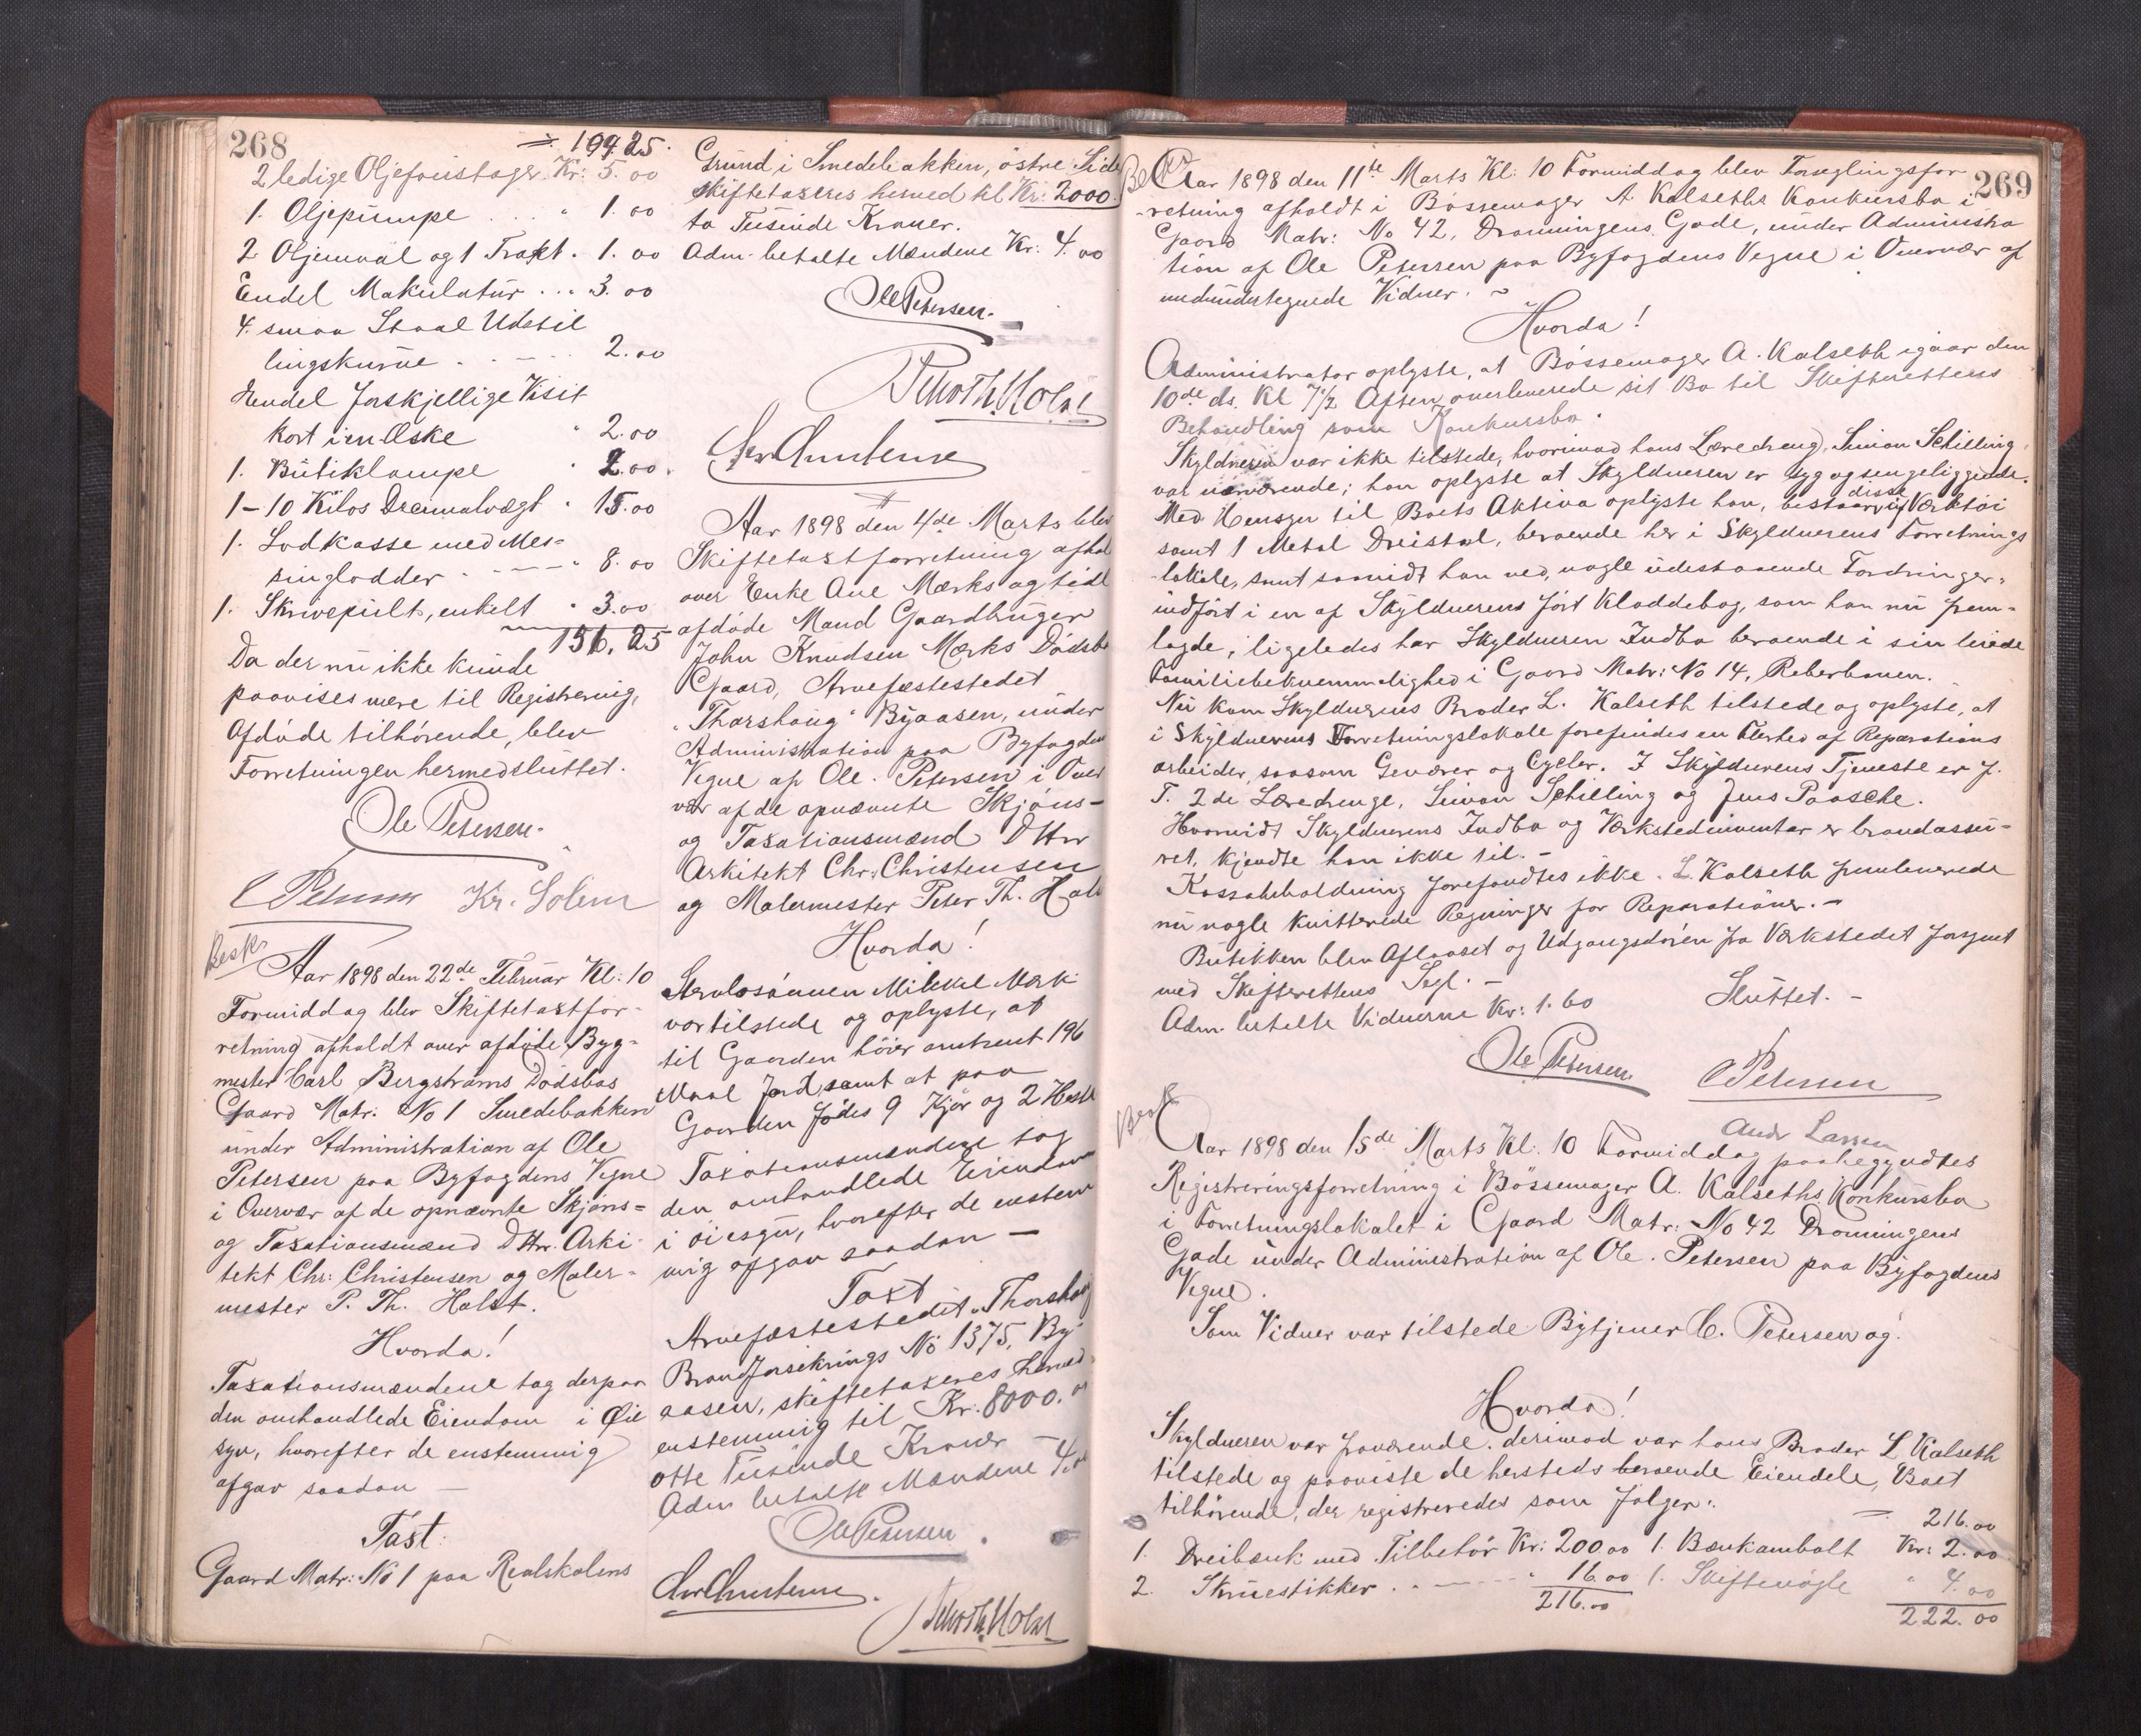 268
÷ 109.25.
2 ledige Oljefoustager Kr: 5.00
1. Oljepumpe . . . " 1.00
2 Oljemaal og 1 Trakt . 1.00
Endel Makulatur . . . 3.00
4. smaa Staal Udstil
lingskurve . . . . 2.00
Hendel forskjellige Visit
kort i en Æske " 2.00
1. Butiklampe " 2.00.
1-10 Kilos Decimalvægt " 15.00
1. Lodkasse med Mes=
singlodder . . . " 8.00
1. Skrivepult, enkelt " 3.00
156.25
Da der nu ikke kunde
paavises mere til Registrering,
Afdøde tilhørende, blev
Forretningen hermed sluttet.
Ole Petersen.
C Petersen Kr. Solem
Beskr
Aar 1898 den 22de Februar Kl: 10
Formiddag blev Skiftetaxtfor-
retning afholdt over afdøde Byg=
mester Carl Bergstrøms Dødsbos
Gaard Matr: No 1 Smedebakken
under Administration af Ole
Petersen paa Byfogdens Vegne
i Overvær af de opnævnte Skjøns=
og Taxationsmænd DHrr. Arki-
tekt Chr: Christensen og Maler=
mester P. Th. Holst.
Hvorda!
Taxationsmændene tog derpaa
den omhandlede Eiendom i Øie
syn, hvorefter de enstemmig
afgav saadan —
Taxt:
Gaard Matr: No 1 paa Realskolens
Grund i Smedebakken, østre Side
skiftetaxeres herved til Kr: 2000.
to Tusinde Kroner.
Adm. betalte Mændene Kr: 4.00
Ole Petersen.
Peter Th. Holst
Chr Christensen
Aar 1898 den 4de Marts blev
Skiftetaxtforretning afhol
over Enke Ane Mærks og tidl
afdøde Mand Gaardbruger
John Knudsen Mærks Dødsbo
Gaard, Arvefæstestedet
"Thorshaug" Byaasen, under
Administration paa Byfogden
Vegne af Ole. Petersen i Over
vær af de opnævnte Skjøns-
og Taxationsmænd DHrr
Arkitekt Chr. Christensen
og Malermester Peter Th. Hols
Hvorda!
Stervbosønnen Mikkel Mærk
var tilstede og oplyste, at
til Gaarden hører omtrent 196
Maal Jord samt at paa
Gaarden fødes 9 Kjør og 2 Heste
Taxationsmændene tog
den omhandlede Eiendom
i øiesyn, hvorefter de enstem
mig afgav saadan —
Taxt
Arvefæstestedet "Thorshaug
Brandforsikrings No 1375, By
aasen, skiftetaxeres herved
enstemmig til Kr. 8000.00
otte Tusinde Kroner —
Adm betalte Mændene 4.00
Ole Petersen.
Chr Christensen.
Peter Th. Holst
269
Beskr
Aar 1898 den 11te Marts Kl: 10 Formiddag blev Forseglingsfor
-retning afholdt i Bøssemager A. Kalseths Konkursbo i
Gaard Matr: No 42, Dronningens Gade, under Administra
tion af Ole Petersen paa Byfogdens Vegne i Overvær af
medundertegnede Vidner. ~
Hvorda!
Administrator oplyste, at Bøssemager A. Kalseth igaar den
10de ds. Kl 7 1/2 Aften overleverede sit Bo til Skifterettens
Behandling som Konkursbo.
Skyldneren var ikke tilstede, hvorimod hans Læredreng, Simon Schilling
var nærværende; han oplyste at Skyldneren er syg og sengeliggende.
Med Hensyn til Boets Aktiva oplyste han, bestaar disse i Værktøi
samt 1 Metal Dreistol, beroende her i Skyldnerens Forretnings
-lokale, samt saavidt han ved, nogle udestaaende Fordringer,
indført i en af Skyldneren ført Kladdebog, som han nu frem=
lagde, ligeledes har Skyldneren Indbo beroende i sin leiede
Familiebekvemmelighed i Gaard Matr: No 14, Reberbanen.
Nu kom Skyldnerens Broder L. Kalseth tilstede og oplyste, at
i Skyldnerens Forretningslokale forefindes en Flerhed af Reparations
arbeider, saasom Geværer og Cycler. I Skyldnerens Tjeneste er f.
T. 2de Læredrenge, Simon Schilling og Jens Paasche.
Hvorvidt Skyldnerens Indbo og Værkstedinventar er brandassu-
ret, kjendte han ikke til. -
Kassabeholdning forefandtes ikke. L. Kalseth fremleverede
nu nogle kvitterede Regninger for Reparationer. -
Butikken blev Aflaaset og Udgangsdøren fra Værkstedet forsynet
med Skifterettens Segl. -
Sluttet. -
Adm. betalte Vidnerne Kr: 1.60
Ole Petersen. C Petersen
Andr Larsen
Beskr
Aar 1898 den 15de Marts Kl: 10 Formiddag paabegyndtes
Registreringsforretning i Bøssemager A. Kalseths Konkursbo
i Forretningslokalet i Gaard Matr: No 42 Dronningens
Gade under Administration af Ole. Petersen paa Byfogdens
Vegne.
Som Vidner var tilstede Bytjener C. Petersen og.
Hvorda!
Skyldneren var fraværende. derimod var hans Broder L. Kalseth
tilstede og paaviste de hersteds beroende Eiendele, Boet
tilhørende, der registreredes som følger:
÷ 216.00
1. Dreibænk med Tilbehør Kr: 200.00 1. Bænkambolt Kr: 2.00
2. Skruestikker . . . . " 16.00 1. Skiftenøgle " 4.00
216.00
222.00